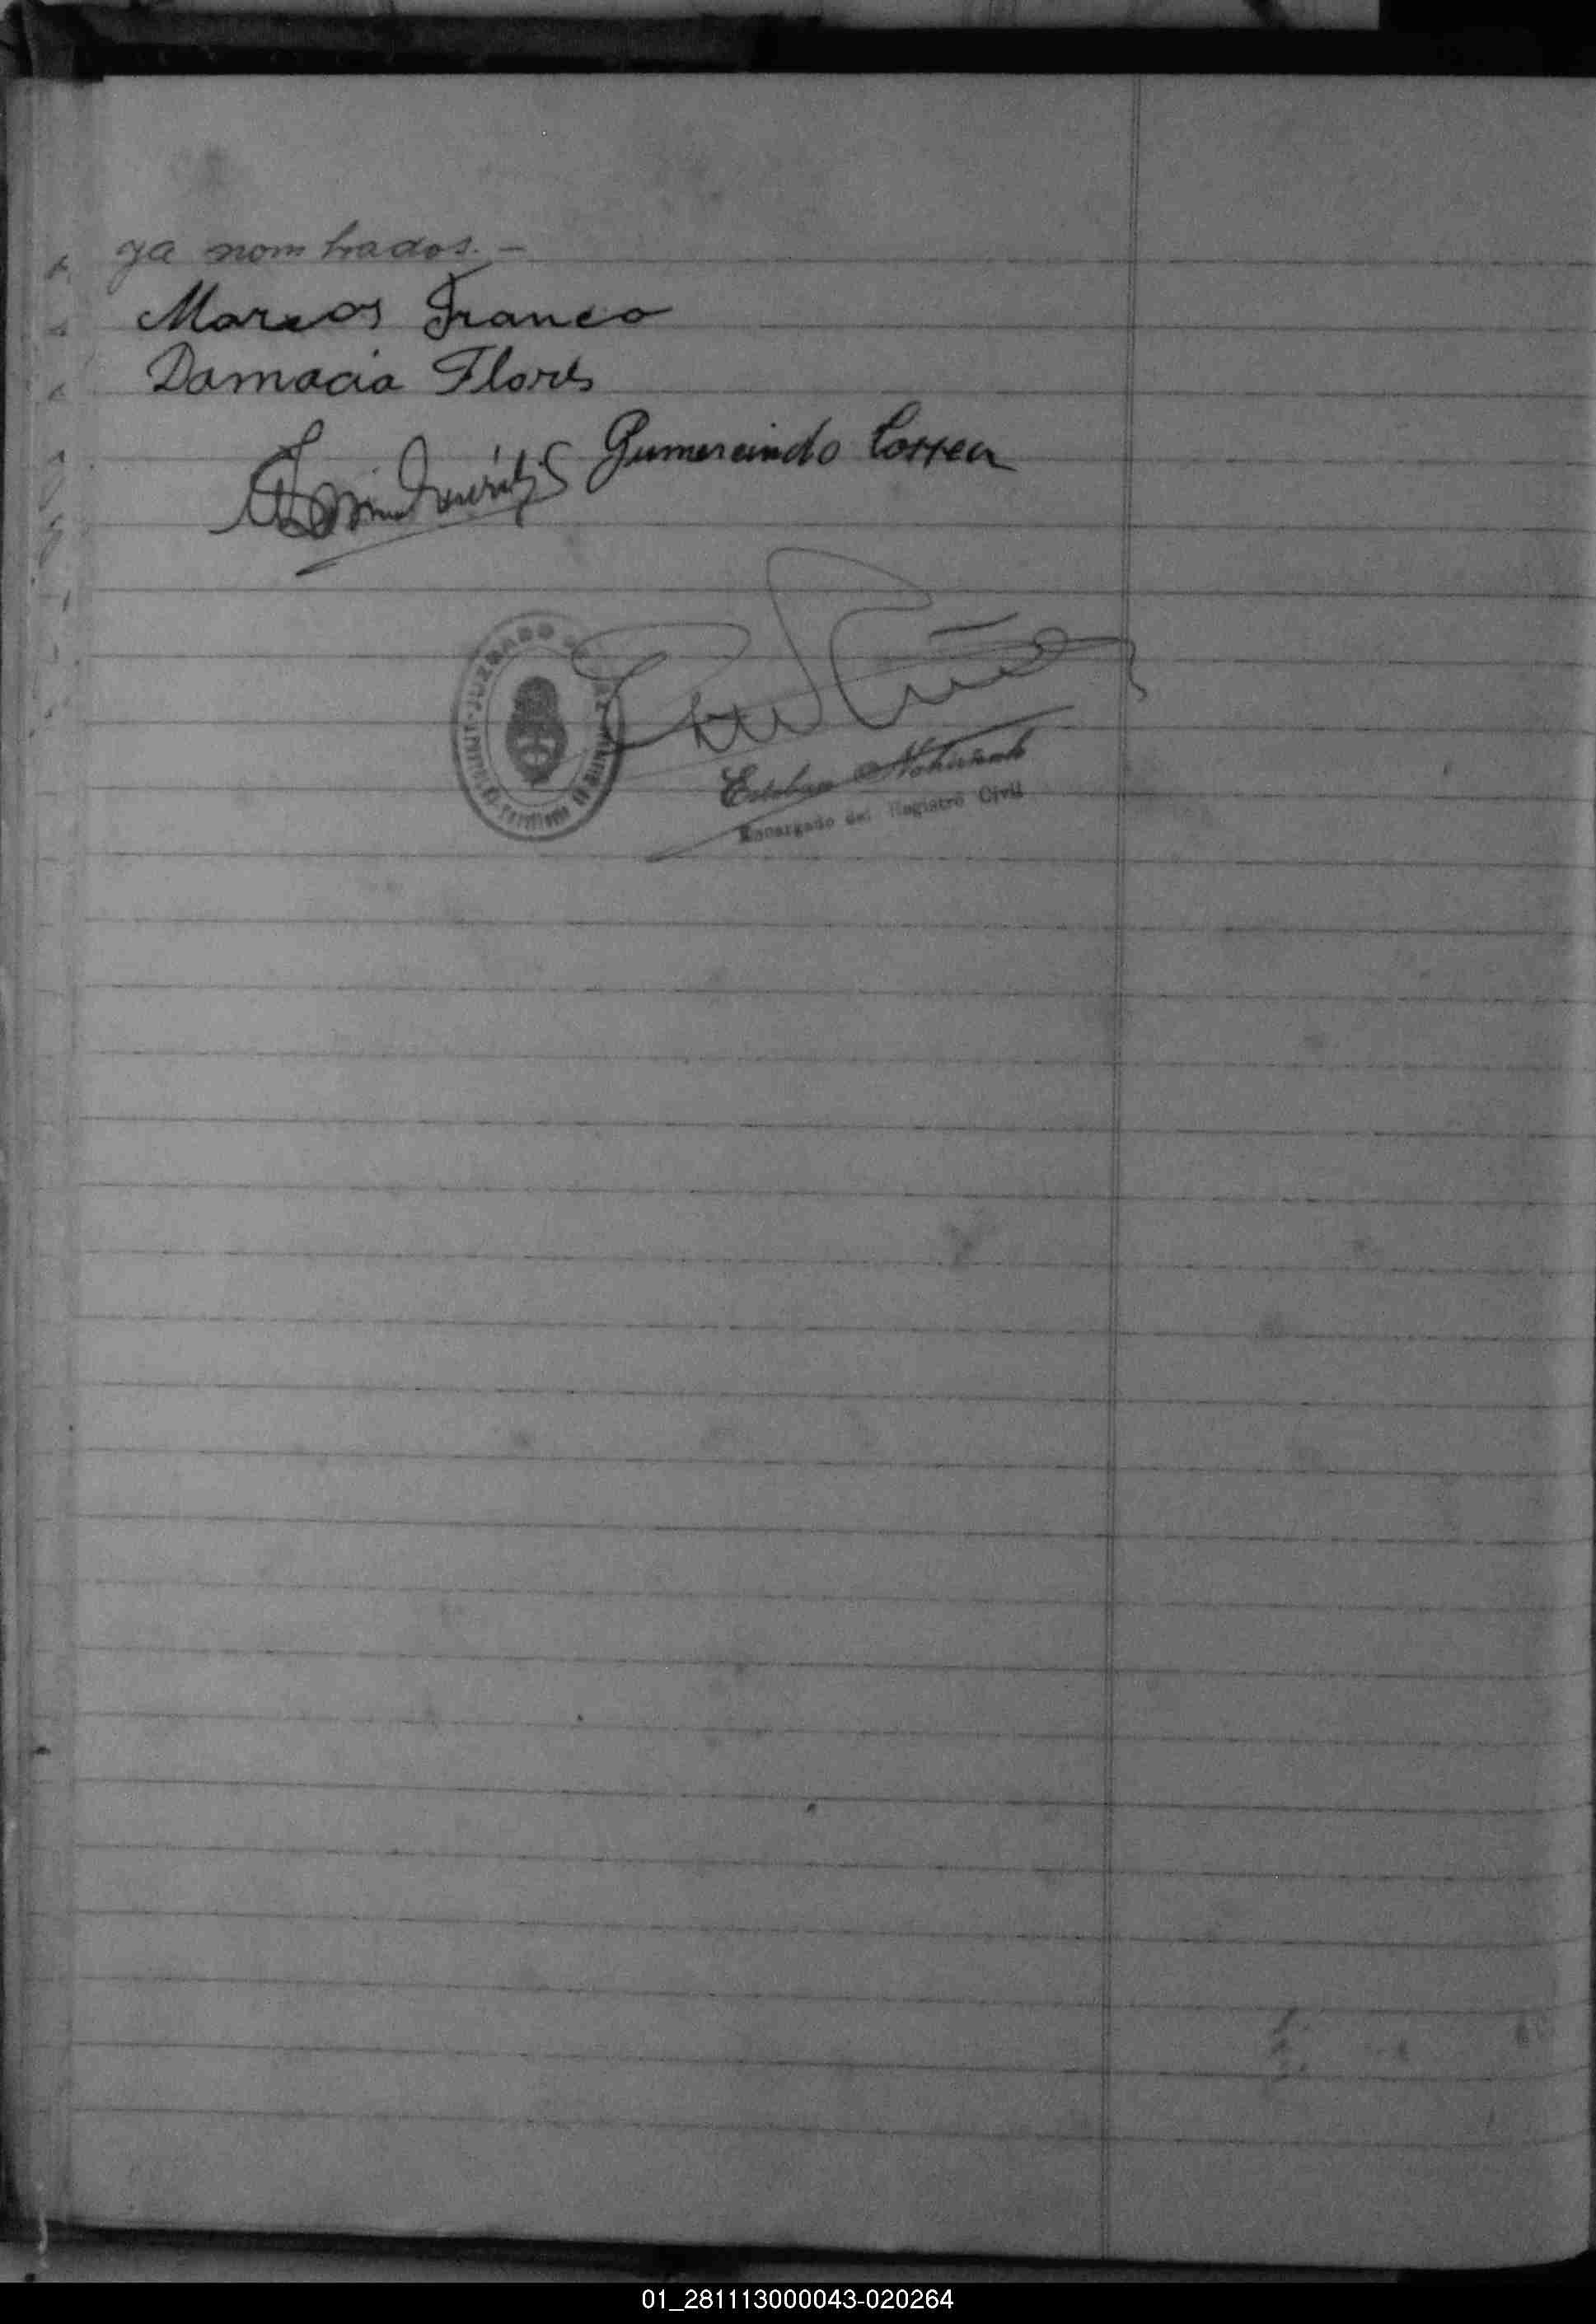 ya nombrados. -
Marcos Franco
Damacia Flores
Gumersindo Correa
JUZGADO
Esteban
Encargado del Registro Civil
01_281113000043-020264